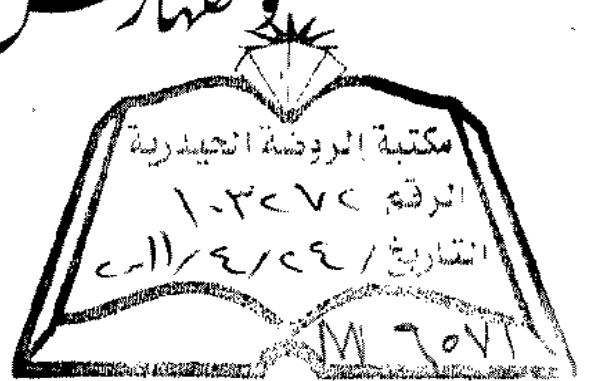 مكتبة الروضة الحيدرية
الرقم ١٠٣٢٧٢
التاريخ / ٢٤/٤/٢٠١١
M ٦٥٧١